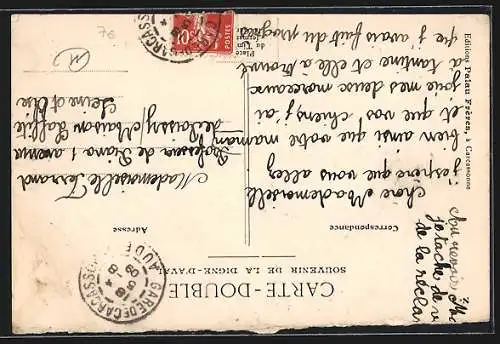 CARTE-DOUBLE
SOUVENIR DE LA DIGUE-D'AVAL
Correspondance
Adresse
Chère Mademoiselle
j'espère que vous allez
bien ainsi que votre maman
et que vos chiens, j'ai
joué mes deux morceaux
à tantine et elle a trouvé
que j'avais fait du progrès
Au revoir
je tache de
de la
Mademoiselle Ferrand
Professeur de Piano 1 avenue
de Poissy, Maison Laffite
Seine et Oise
Editions Palau Frères, à Carcassonne
Place
du Tim
GARE DE CARCASSONNE
AUDE
CARCASSO
10
76